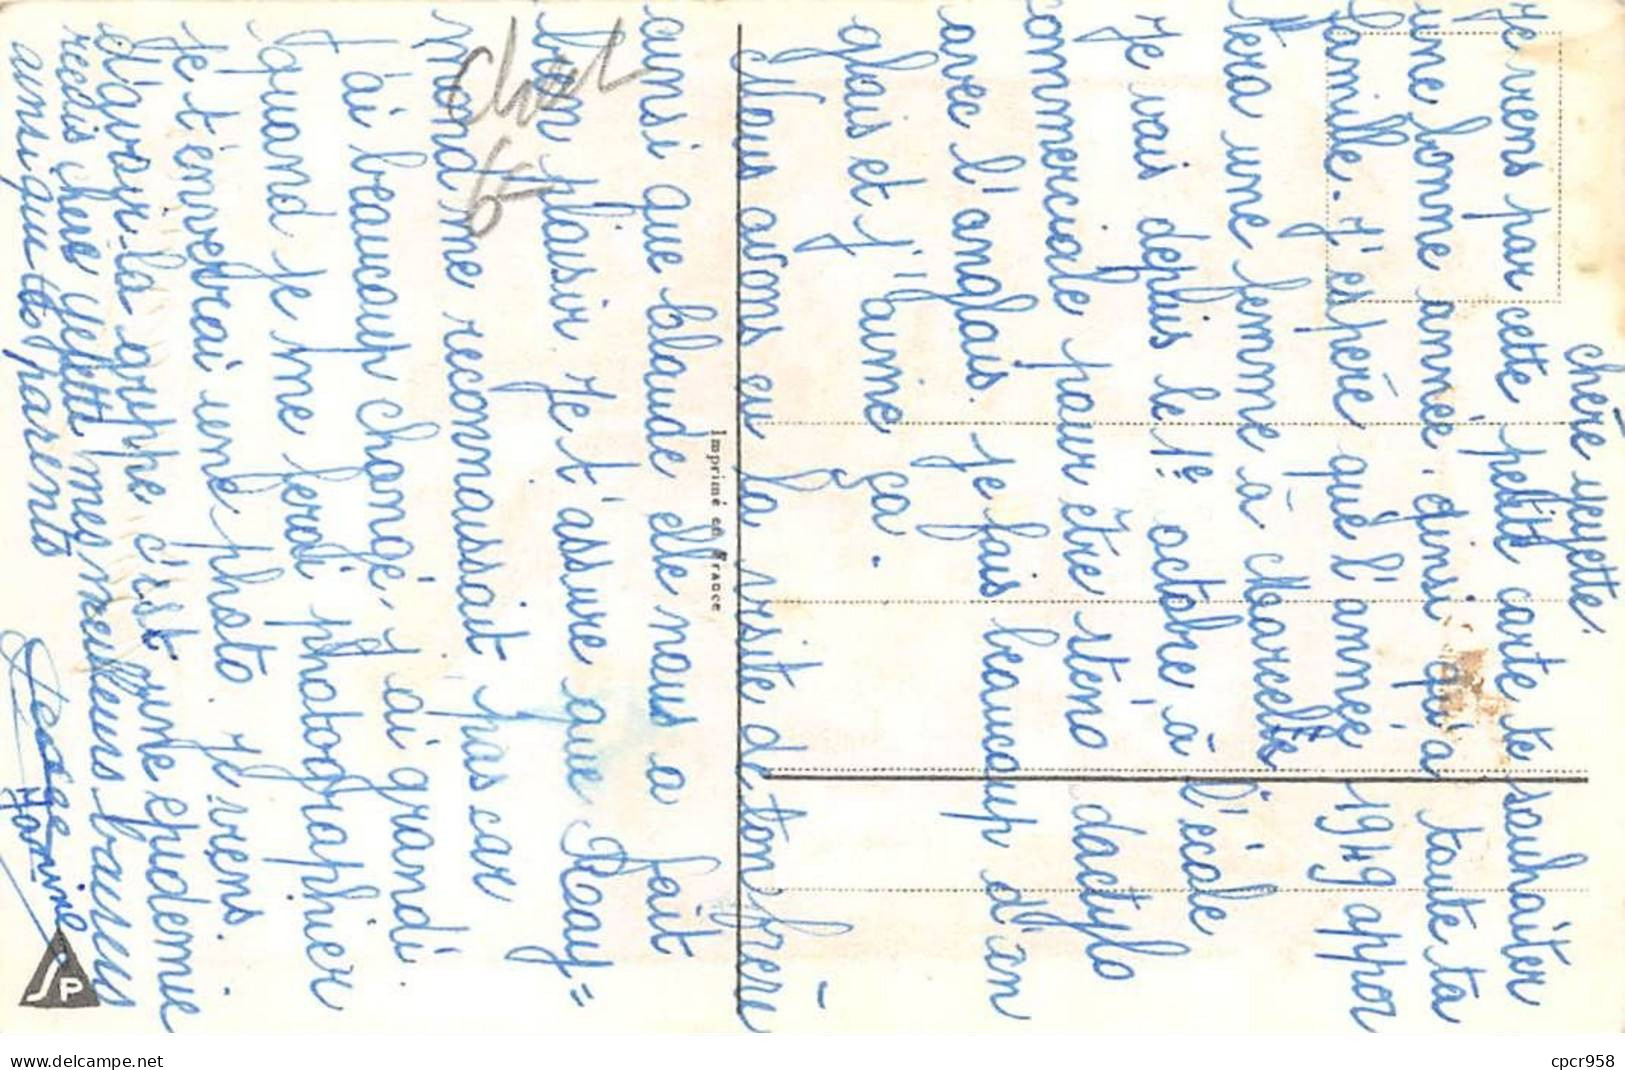 chère yeyette.
Je viens par cette petite carte te souhaiter
une bonne année. ainsi qu'a toute ta
famille. J'espère que l'année 1949 appor
tera une femme à Marcelle
Je vais depuis le 1e octobre, à l'école
commerciale pour être sténo dactylo
avec l'anglais. je fais beaucoup d'an
glais et j'aime ça.
Nous avons eu la visite de ton frère
ainsi que Claude elle nous a fait
bien plaisir. Je t'assure que Ray=
mond me reconnaissait pas car
j'ai beaucoup changé, j'ai grandi.
quand je me ferai photographier
Je t'enverrai une photo. Je viens.
d'avoir la grippe c'est une epidemie
recois chere yeyette mes meilleurs baisers
ainsi qu'a tes parents
Imprimé en France
6
SP
cpcr958